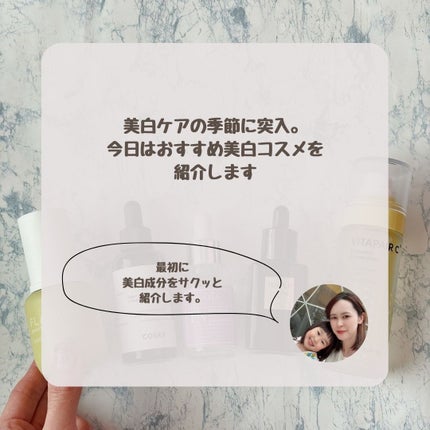 美白ケアの季節に突入。
今日はおすすめ美白コスメを
紹介します
最初に
美白成分をサクッと
紹介します。
COSRX
VITAPAIRC